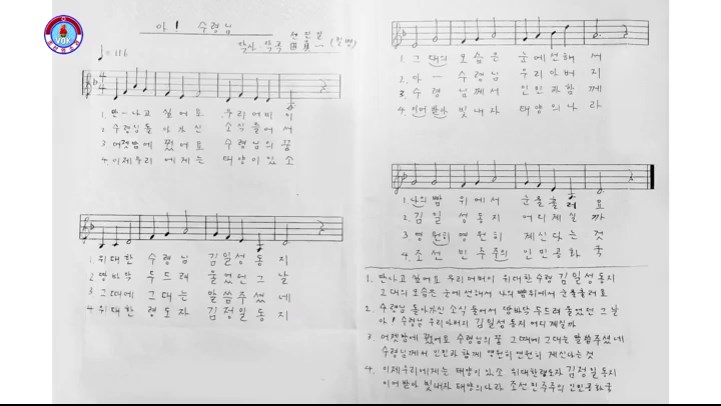 VOK
아! 수령님
작사 작곡
♩=116
1. 만나고 싶어요 우리어버이
2. 수령님 돌아가신 소식 들어서
3. 어젯밤에 꿨어요 수령님의 꿈
4. 이제우리에게는 태양이 있소
1. 위대한 수령님 김일성동지
2. 땅바닥 두드려 울었던 그날
3. 그때에 그대는 말씀주셨네
4. 위대한 령도자 김정일동지
1. 그대의 모습은 눈에선해서
2. 아 수령님 우리아버지
3. 수령님께서 인민과함께
4. 이어받아 빛내자 태양의나라
1. 나의 뺨 위에서 눈물흘러요
2. 김일성동지 어디계실까
3. 영원히 영원히 계신다는것
4. 조선 민주주의 인민공화국
1. 만나고 싶어요 우리어버이 위대한수령 김일성동지
그대의모습은 눈에선해서 나의뺨위에서 눈물흘러요
2. 수령님 돌아가신 소식 들어서 땅바닥 두드려 울었던 그날
아! 수령님 우리아버지 김일성동지 어디계실까
3. 어젯밤에 꿨어요 수령님의 꿈 그때에 그대는 말씀주셨네
수령님께서 인민과 함께 영원히 영원히 계신다는것
4. 이제우리에게는 태양이 있소 위대한령도자 김정일동지
이어받아 빛내자 태양의나라 조선민주주의 인민공화국